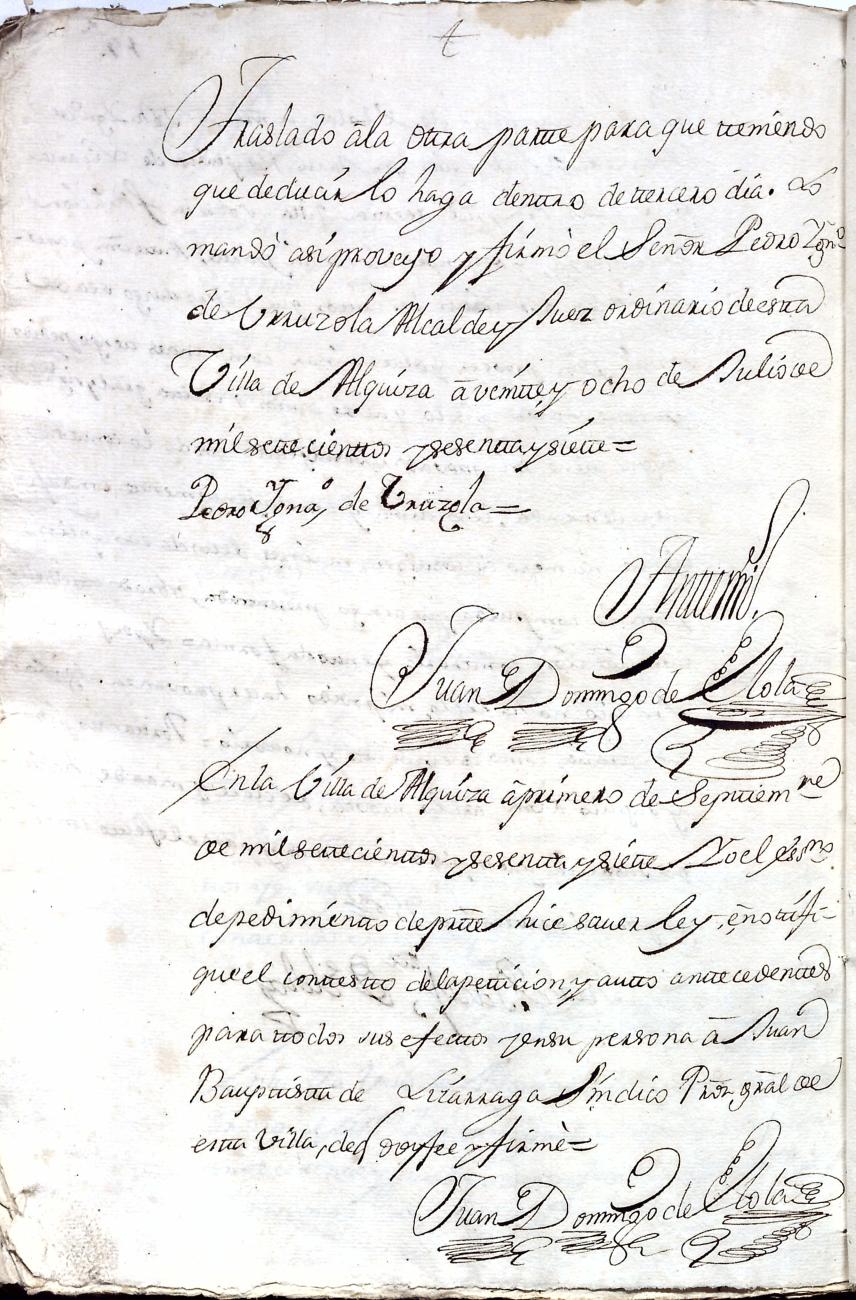 Traslado âla otra parte para que tteniendo
que deducir lo haga dentro de tercero dia. Lo
mandò asi proveyo y firmò el Señor Pedro Ygn.º
de Urruzola Alcalde y Juez ordinario de esta
Villa de Alquiza â veintte y ocho de Julio de
mil sette cienttos y sesentta y siette =
Pedro Ygna.º de Urruzola =
Antte mi,
Juan Domingo de Elola
En la Villa de Alquiza â primero de Septiem.re
de mil settecienttos y sesentta y siette Yo el ess.no
de pedimiento de partte hice saver ley, è nottifi-
que el conttestto de la petticion, y autto anttecedenttes
para ttodos sus efectos y en su persona â Juan
Bauptistta de Lizarraga Sindico Pror. gral de
estta Villa, de q doy fee y firmè =
Juan Domingo de Elola